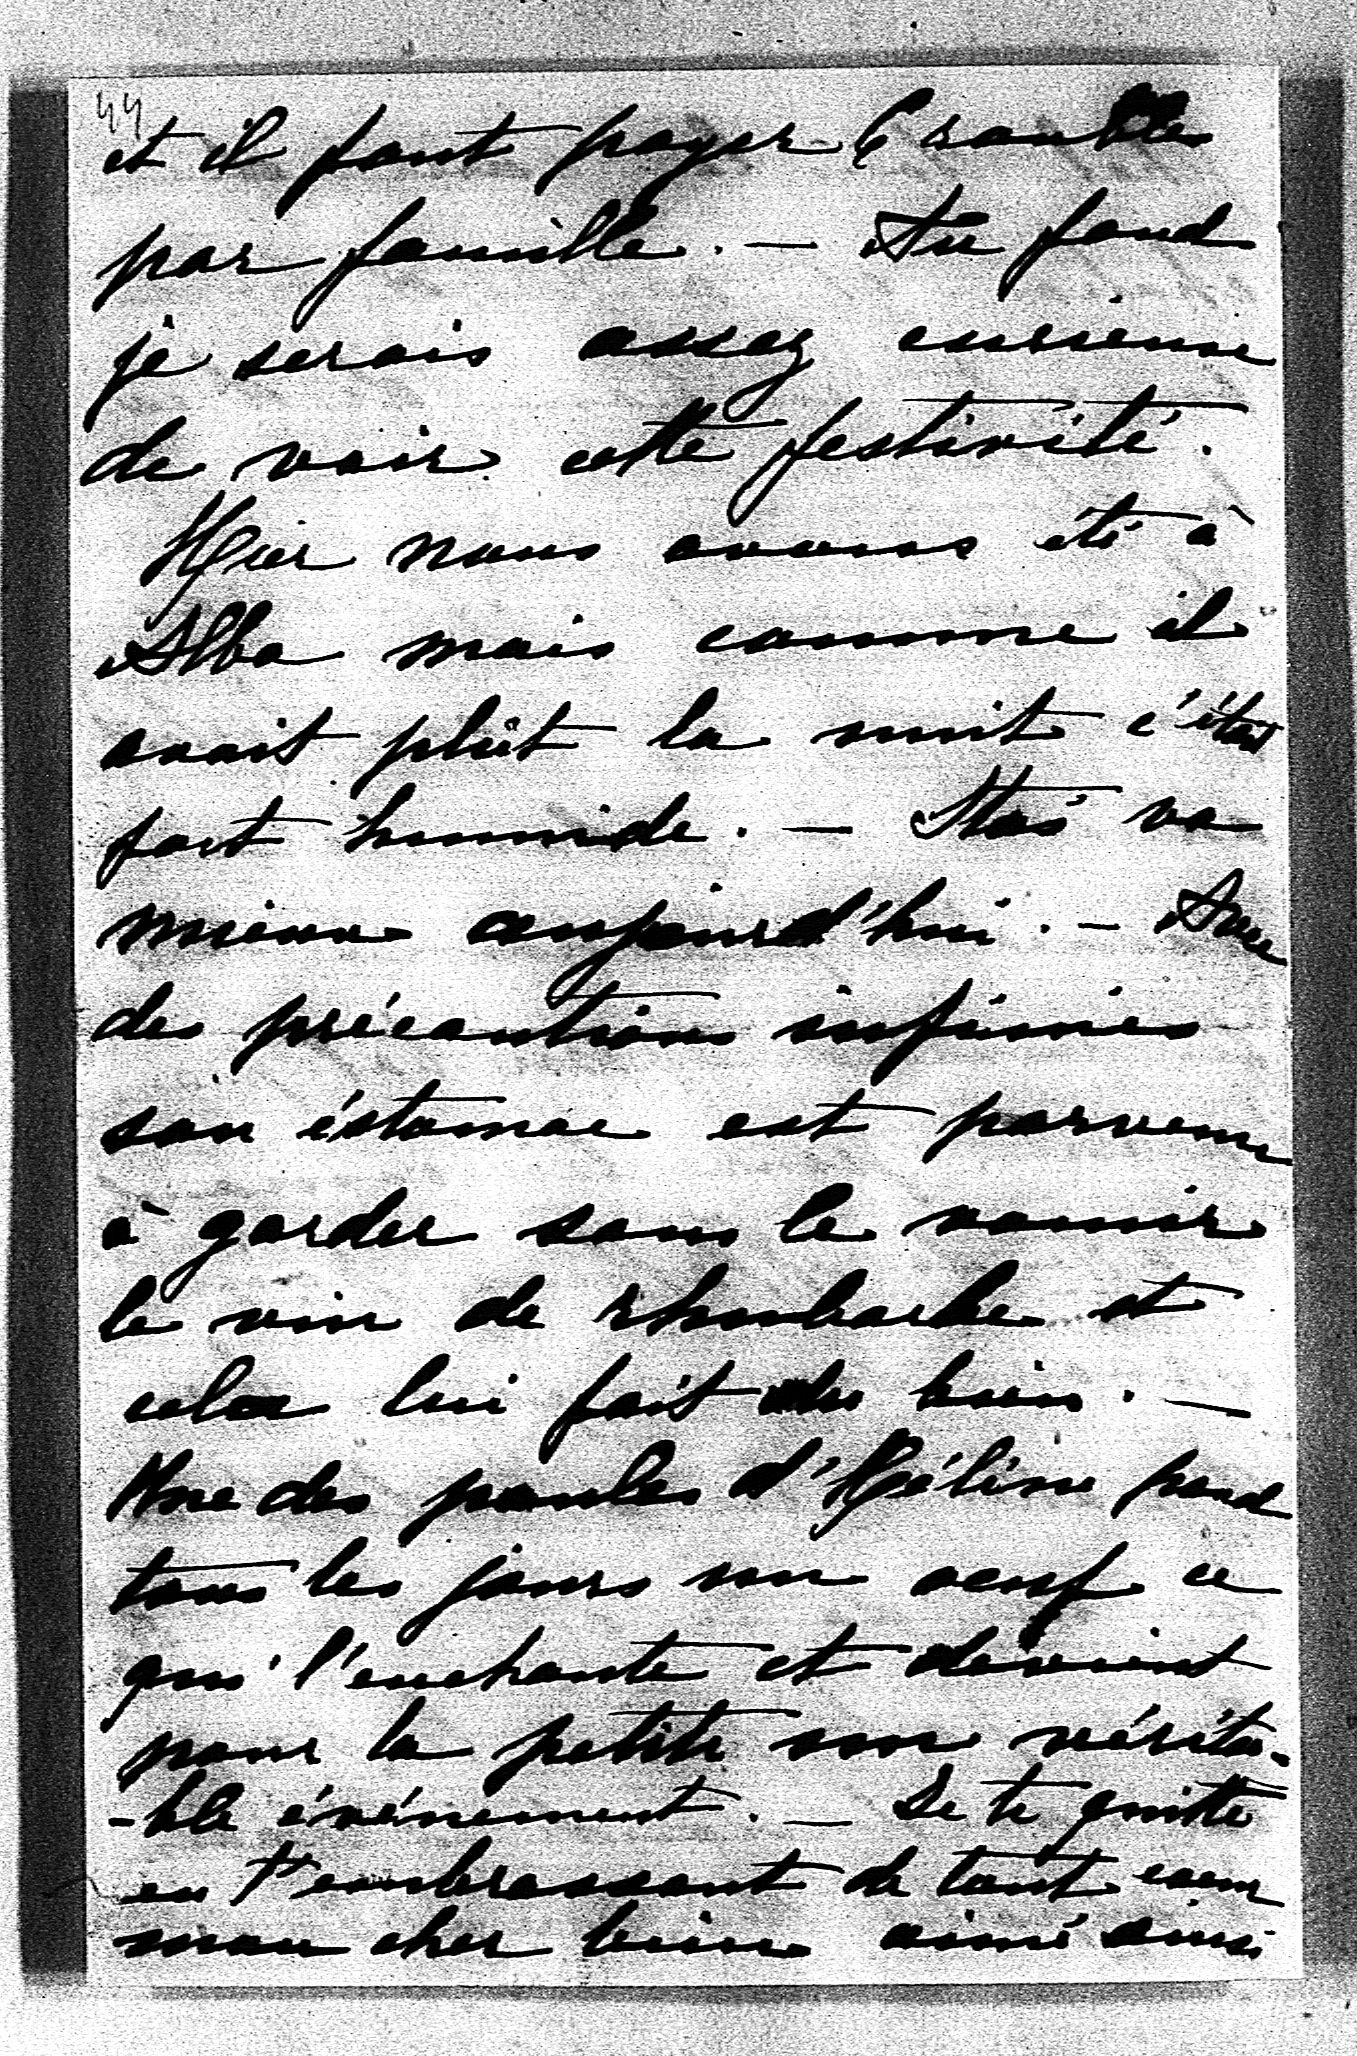 44
et il faut payer 6 roubles
par famille. — Au fond
je serais assez curieuse
de voir cette festivité.
Hier nous avons été à
Alba mais comme il
avait plût la nuit c'était
fort humide. — Stas' va
mieux aujourd'hui. — Avec
des précautions infinies
son éstomac est parvenu
à garder sans le vomir
le vin de rhubarbe et
cela lui fait du bien. —
Une des poules d'Hélène pond
tous les jours un oeuf ce
qui l'enchante et devient
pour la petite un vérita-
-ble événement. — Je te quitte
en t'embrassant de tout coeur
mon cher bien aimé ainsi